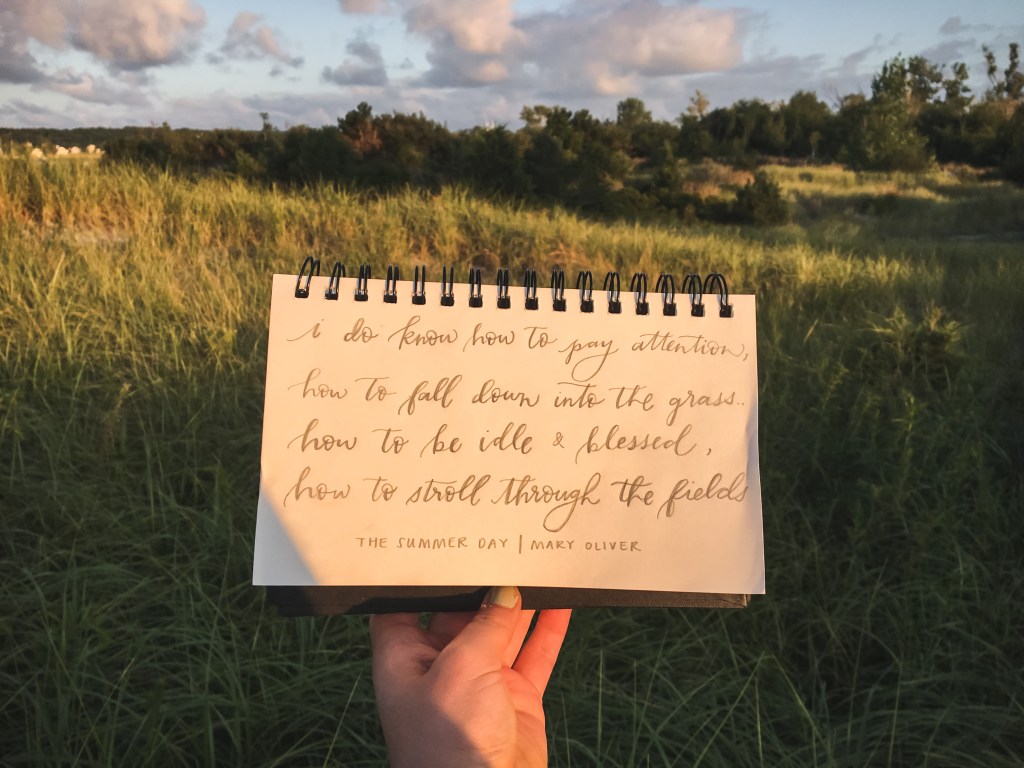 i do know how to pay attention,
how to fall down into the grass..
how to be idle & blessed,
how to stroll through the fields
THE SUMMER DAY | MARY OLIVER